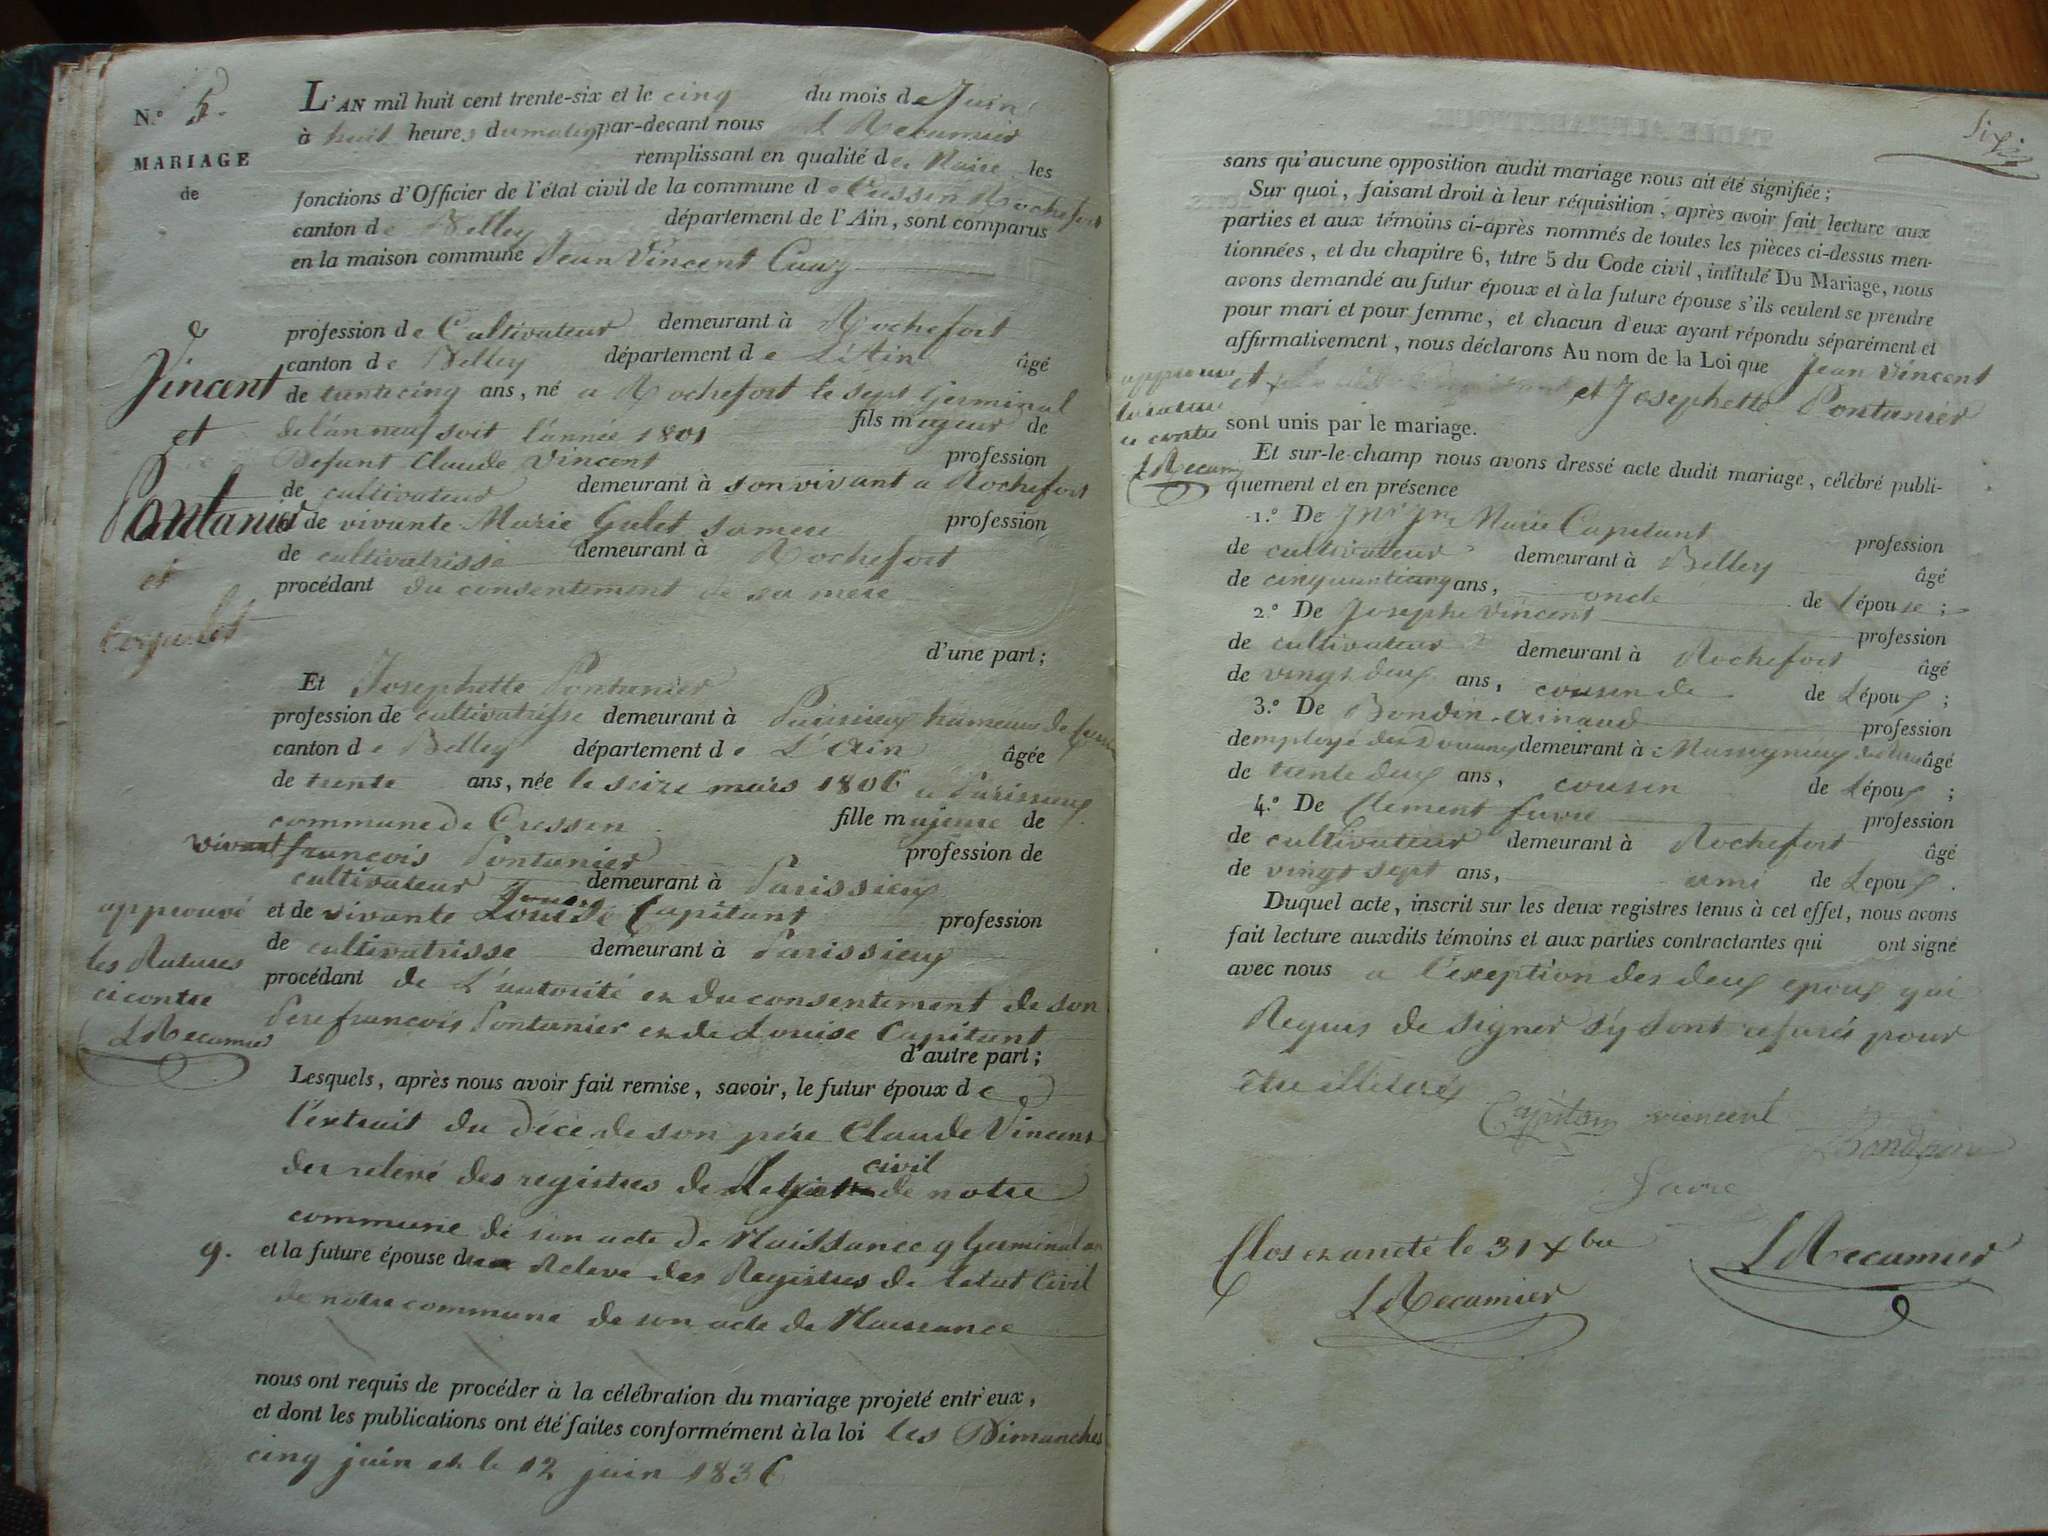 N.° 5.
MARIAGE
de
Vincent
et
Pontanier
et
L'AN mil huit cent trente-six et le cinq du mois de Juin
à huit heures du matin par-devant nous L Recamier
remplissant en qualité de Maire les
fonctions d'Officier de l'état civil de la commune de Cressin Rochefort
canton de Belley département de l'Ain, sont comparus
en la maison commune Jean Vincent
profession de Cultivateur demeurant à Rochefort
canton de Belley département de L'Ain âgé
de trente cinq ans, né a Rochefort le sept Germinal
de l'an neuf soit l'année 1801 fils majeur de
Defunt Claude Vincent profession
de cultivateur demeurant à son vivant a Rochefort
et de vivante Marie Gulet sa mere profession
de cultivatrisse demeurant à Rochefort
procédant du consentement de sa mere
d'une part;
Et Josephette Pontanier
profession de cultivatrisse demeurant à Parissieux hameaux de
canton de Belley département de L'Ain âgée
de trente ans, née le seize mars 1806 a Parissieux
commune de Cressin fille majeure de
vivant francois Pontanier profession de
cultivateur demeurant à Parissieux
et de vivante Louise Capitant profession
de cultivatrisse demeurant à Parissieux
procédant de L'autorité et du consentement de son
Pere francois Pontanier et de Louise Capitant
d'autre part;
approuvé
les Ratures
ci contre
L Recamier
Lesquels, après nous avoir fait remise, savoir, le futur époux de
l'extrait du décé de son père Claude Vincent
des relevé des registres de civil de notre
commune de son acte de Naissance 9 Germinal an
9. et la future épouse du Releve des Registres de letat Civil
de notre commune de son acte de Naissance
nous ont requis de procéder à la célébration du mariage projeté entr'eux,
et dont les publications ont été faites conformément à la loi les Dimanches
cinq juin et le 12 juin 1836
six
sans qu'aucune opposition audit mariage nous ait été signifiée;
Sur quoi, faisant droit à leur réquisition, après avoir fait lecture aux
parties et aux témoins ci-après nommés de toutes les pièces ci-dessus men-
tionnées, et du chapitre 6, titre 5 du Code civil, intitulé Du Mariage, nous
avons demandé au futur époux et à la future épouse s'ils veulent se prendre
pour mari et pour femme, et chacun d'eux ayant répondu séparément et
affirmativement, nous déclarons Au nom de la Loi que Jean Vincent
et et Josephette Pontanier
sont unis par le mariage.
approuvé
la rature
ci contre
L Recamier
Et sur-le-champ nous avons dressé acte dudit mariage, célébré publi-
quement et en présence
1.° De Marie Capitant
profession
de cultivateur demeurant à Belley âgé
de cinquante cinq ans, oncle de l'épouse;
2.° De Josephe Vincent
profession
de cultivateur demeurant à Rochefort âgé
de vingt deux ans, cousin de de Lépoux;
3.° De Bondin
profession
demployé des Douanes demeurant à âgé
de trente deux ans, cousin de Lépoux;
4.° De Clement favre
profession
de cultivateur demeurant à Rochefort âgé
de vingt sept ans, ami de Lepoux.
Duquel acte, inscrit sur les deux registres tenus à cet effet, nous avons
fait lecture auxdits témoins et aux parties contractantes qui ont signé
avec nous a l'exeption des deux epoux qui
Requis de signer s'y sont refusés pour
etre illiterés
Capitan viencent
favre
Clos et arreté le 31 Xbre
L Recamier
L Recamier